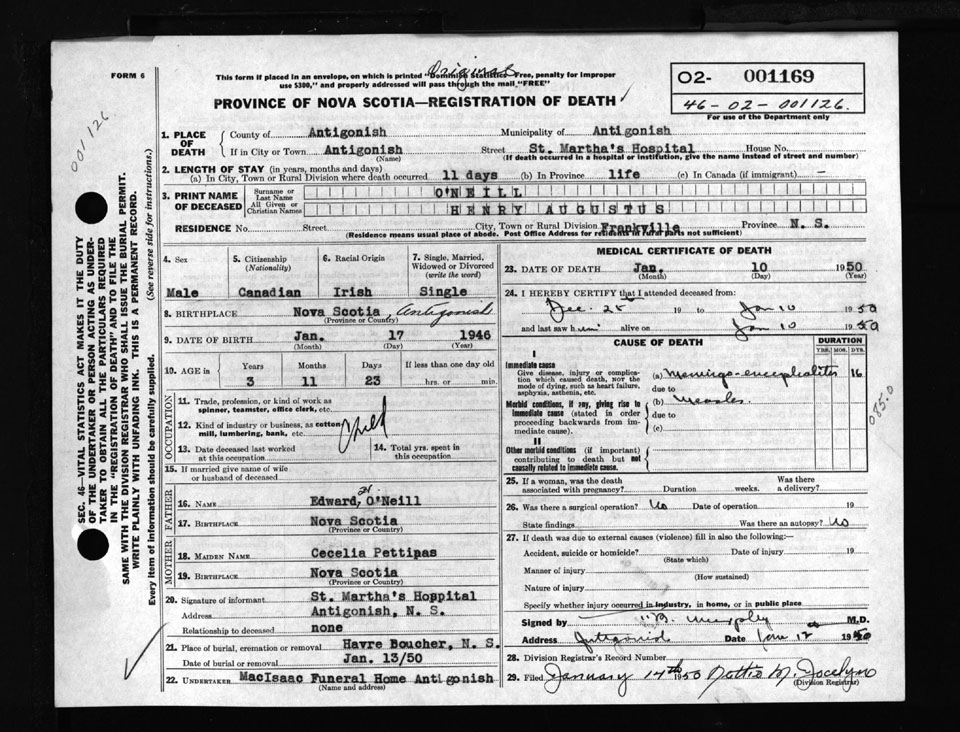 FORM 6
Original
This form if placed in an envelope, on which is printed "Dominion Statistics Free, penalty for improper
use $300," and properly addressed will pass through the mail "FREE"
PROVINCE OF NOVA SCOTIA—REGISTRATION OF DEATH
02- 001169
46-02-001126.
For use of the Department only
001126
1. PLACE OF DEATH
County of Antigonish Municipality of Antigonish
If in City or Town Antigonish Street St. Martha's Hospital House No.
(Name) (If death occurred in a hospital or institution, give the name instead of street and number)
2. LENGTH OF STAY (in years, months and days)
(a) In City, Town or Rural Division where death occurred 11 days (b) In Province life (c) In Canada (if immigrant) —
3. PRINT NAME OF DECEASED
Surname or Last Name O'NEILL
All Given or Christian Names HENRY AUGUSTUS
RESIDENCE No. Street City, Town or Rural Division Frankville Province N. S.
(Residence means usual place of abode. Post Office Address for residents in rural parts not sufficient)
4. Sex 5. Citizenship (Nationality) 6. Racial Origin 7. Single, Married, Widowed or Divorced (write the word)
Male Canadian Irish Single
8. BIRTHPLACE Nova Scotia, Antigonish
(Province or Country)
9. DATE OF BIRTH Jan. 17 1946
(Month) (Day) (Year)
10. AGE in Years Months Days If less than one day old
3 11 23 hrs. or min.
OCCUPATION
11. Trade, profession, or kind of work as spinner, teamster, office clerk, etc.
12. Kind of industry or business, as cotton mill, lumbering, bank, etc.
Child
13. Date deceased last worked at this occupation
14. Total yrs. spent in this occupation
15. If married give name of wife or husband of deceased
FATHER
16. NAME Edward O'Neill
17. BIRTHPLACE Nova Scotia
(Province or Country)
MOTHER
18. MAIDEN NAME Cecelia Pettipas
19. BIRTHPLACE Nova Scotia
(Province or Country)
20. Signature of informant St. Martha's Hospital
Address Antigonish, N. S.
Relationship to deceased none
21. Place of burial, cremation or removal Havre Boucher, N. S.
Date of burial or removal Jan. 13/50
22. UNDERTAKER MacIsaac Funeral Home Antigonish
(Name and address)
MEDICAL CERTIFICATE OF DEATH
23. DATE OF DEATH Jan. 10 1950
(Month) (Day) (Year)
24. I HEREBY CERTIFY that I attended deceased from:
Dec. 25 19 to Jan 10 1950
and last saw him alive on Jan 10 1950
CAUSE OF DEATH
DURATION
YRS. MOS. DYS.
I
Immediate cause
Give disease, injury or complication which caused death, NOT the mode of dying, such as heart failure, asphyxia, asthenia, etc.
(a) Meningo-encephalites 16
due to
Morbid conditions, if any, giving rise to immediate cause (stated in order proceeding backwards from immediate cause).
(b) Measles.
due to
(c)
085.0
II
Other morbid conditions (if important) contributing to death but not causally related to immediate cause.
25. If a woman, was the death associated with pregnancy? Duration weeks. Was there a delivery?
26. Was there a surgical operation? No Date of operation 19
State findings Was there an autopsy? No
27. If death was due to external causes (violence) fill in also the following:—
Accident, suicide or homicide? Date of injury 19
(State which)
Manner of injury
(How sustained)
Nature of injury
Specify whether injury occurred in industry, in home, or in public place
Signed by Murphy M.D.
Address Antigonish Date Jan 12 1950
28. Division Registrar's Record Number
29. Filed January 14th 1950 Nettie M. Jocelyn
(Division Registrar)
SEC. 46—VITAL STATISTICS ACT MAKES IT THE DUTY
OF THE UNDERTAKER OR PERSON ACTING AS UNDERTAKER TO OBTAIN ALL THE PARTICULARS REQUIRED
IN THE "REGISTRATION OF DEATH" AND TO FILE THE
SAME WITH THE DIVISION REGISTRAR WHO SHALL ISSUE THE BURIAL PERMIT.
WRITE PLAINLY WITH UNFADING INK. THIS IS A PERMANENT RECORD.
Every item of information should be carefully supplied. (See reverse side for instructions.)